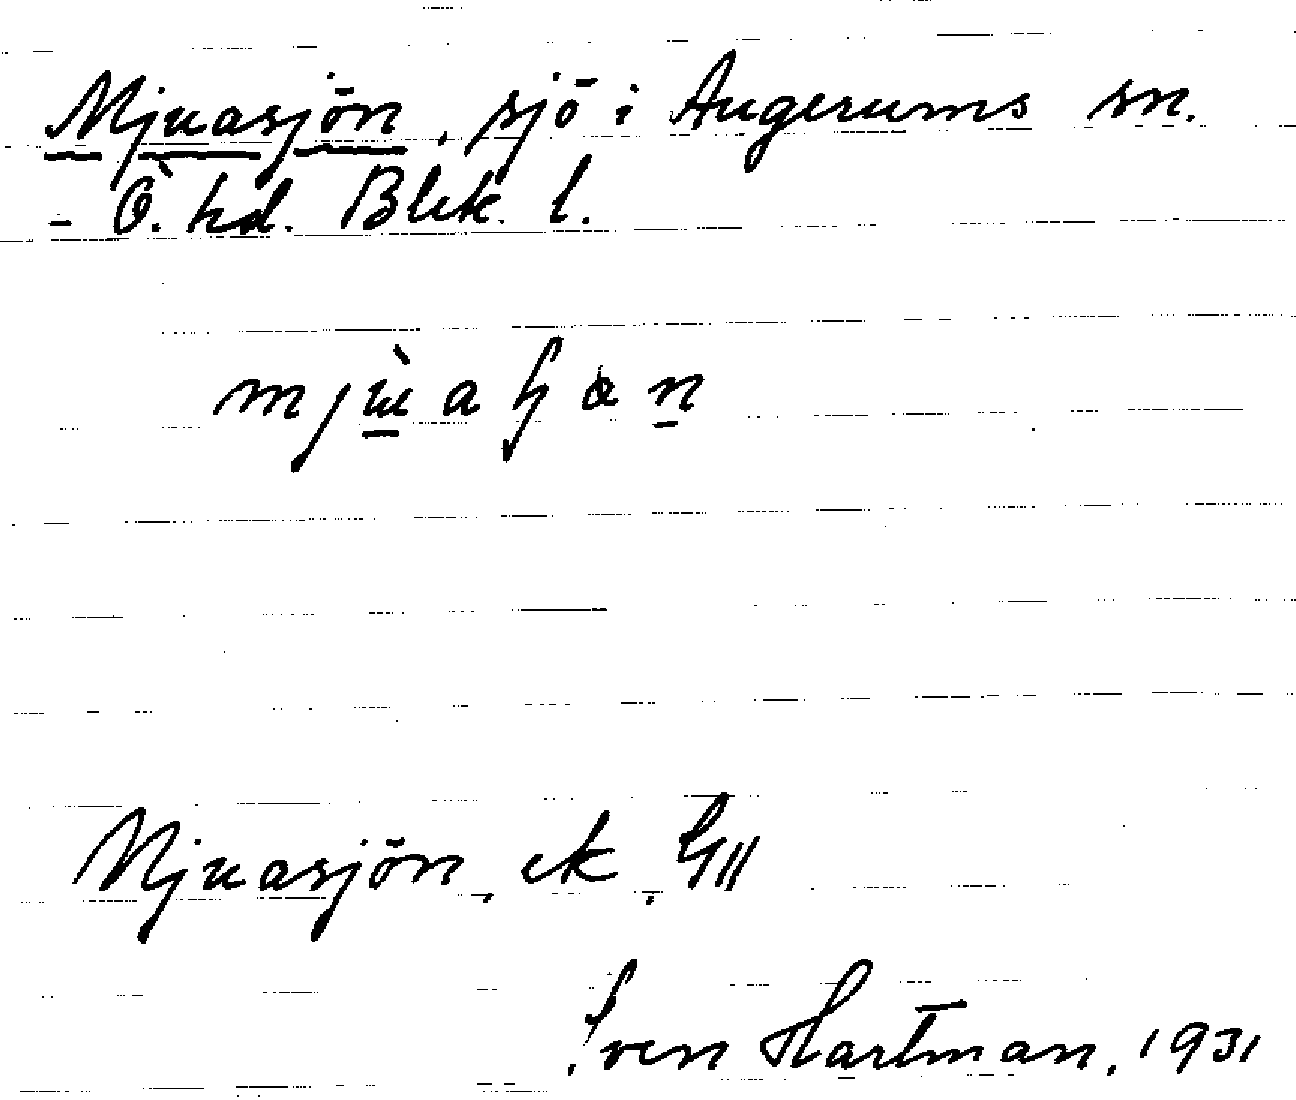 Mjuasjön, sjö i Augerums sn.
- Ö. hd. Blek. l.
Mjuasjön, ek.
Sven Hartman, 1931